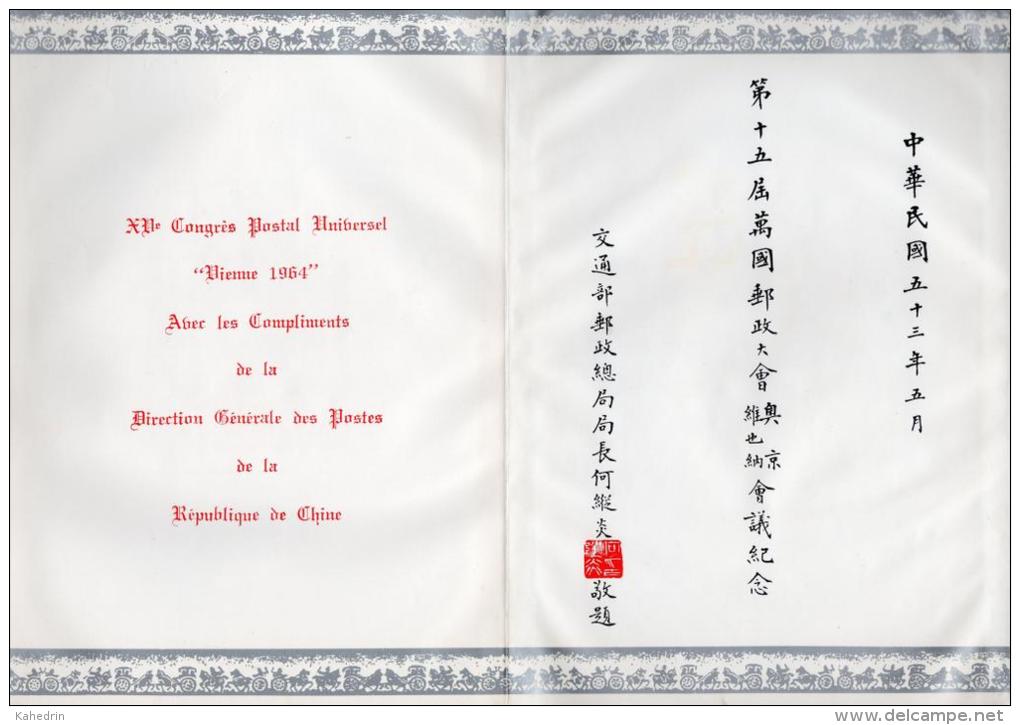 XVe Congrès Postal Universel
"Vienne 1964"
Avec les Compliments
de la
Direction Générale des Postes
de la
République de Chine
中華民國五十三年五月
第十五屆萬國郵政大會奧京維也納會議紀念
交通部郵政總局局長何縱炎敬題
Kahedrin
www.delcampe.net